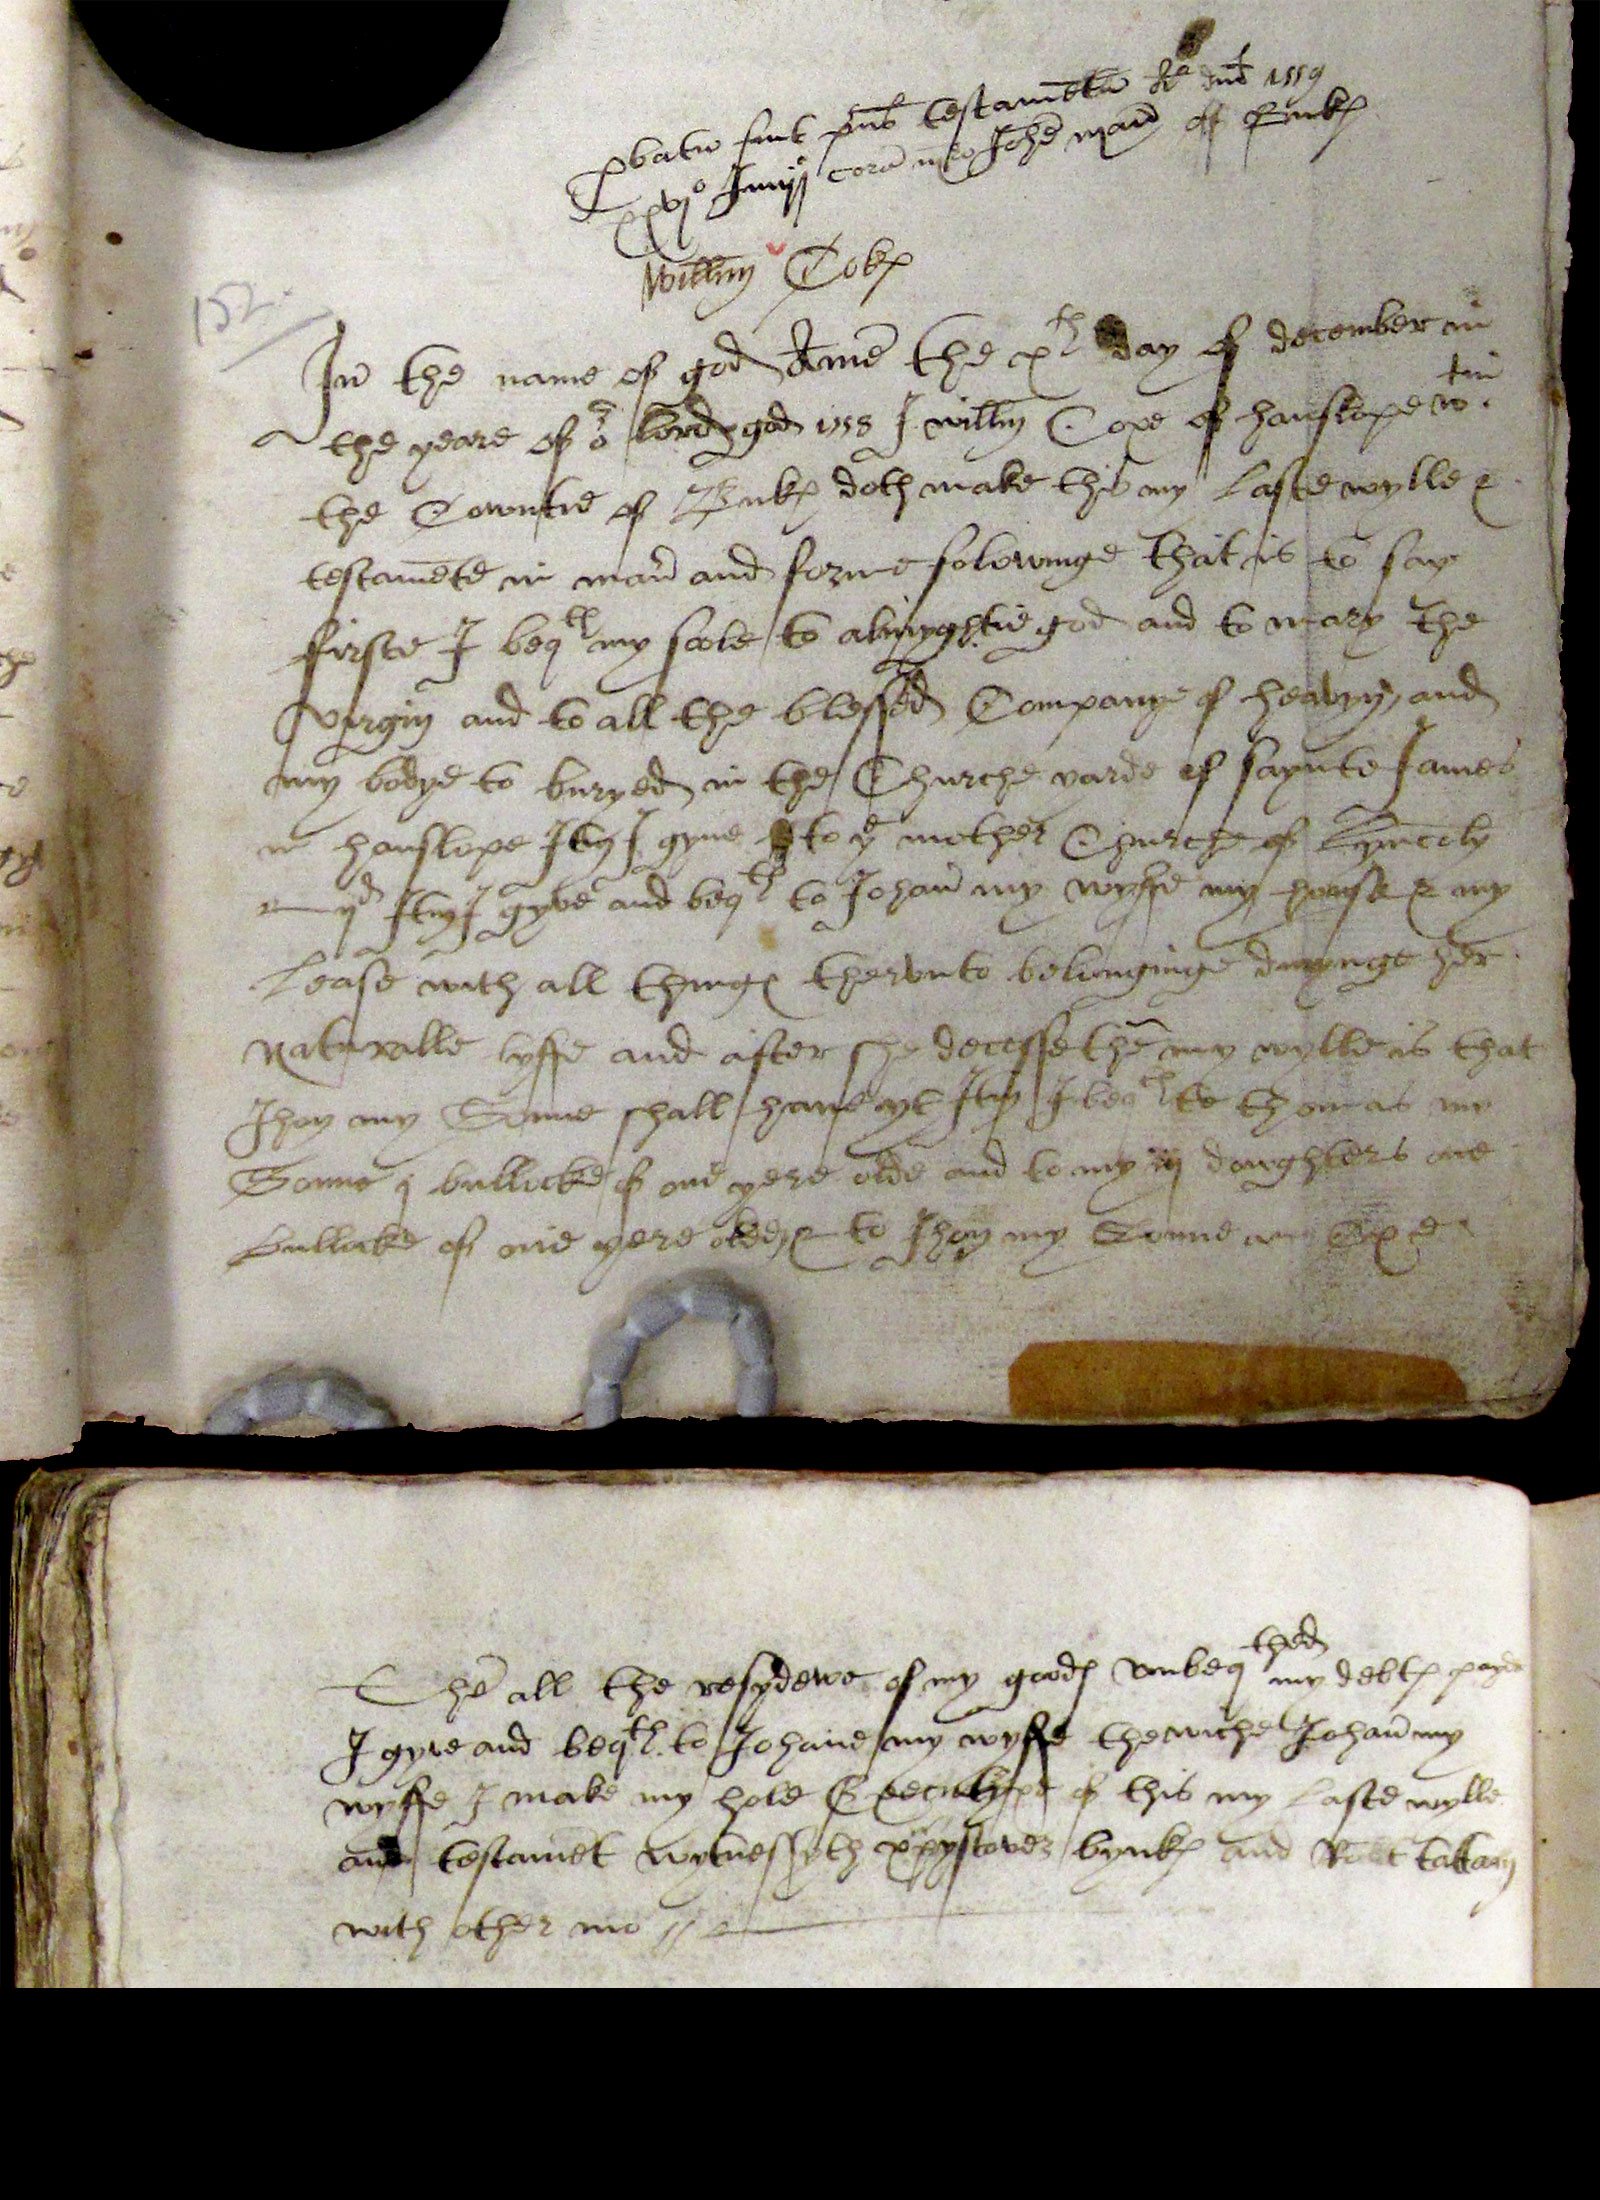 pbatu fuit pns testametu Ao dni 1559
xxvjo Junij cora mro Johe man off Buks
Willm Coks
152
In the name of god Ame the xth day of december in
the yeare of or lord god 1558 I willm Coxe of hanslope wtin
the Countie of Buks doth make this my Laste wylle &
testamete in manr and forme folowinge that is to say
firste I beqth my sole to almyghtie god and to mary the
virgin and to all the blessed Company of heavyn, and
my bodye to buryed in the Churche yarde of saynte James
in hanslope Itm I gyve to ye mother Churche of Lyncoln
ijd Itm I gyve and beqth to Johan my wyffe my house & my
Lease with all things thervnto belonginge durynge her
Naturalle lyffe and after she decesse the my wylle is that
Jhon my Sonne shall have yt Itm I beqth to thomas my
Sonne j bullocke of one yere olde and to my iij doughters one
Bullocke of one yere olde, & to Jhon my Sonne an Oxe
The all the resydewe of my goods vnbeqthed my debts payde
I gyve and beqth to Johane my wyffe the wiche Johan my
wyffe I make my hole Executryxe of this my Laste wylle
and testamet wytnessyth xpystover bynks and Robt tattam
with other mo //